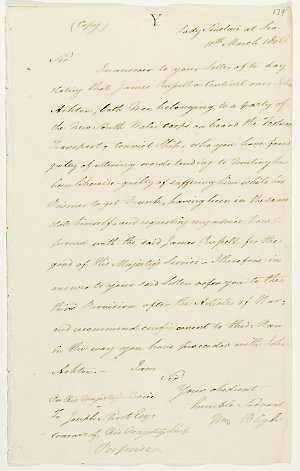 (Copy)
Y
139
Lady Sinclair at Sea
11th March 1806
Sir
In answer to your Letter of to day
stating that James Russell a Centinel over John
Ashton, both Men belonging to a party of
the New South Wales corps on board the
Transport & Convict Ship, who you have found
guilty of uttering words tending to Mutiny has
been likewise guilty of suffering him while his
Prisoner to get Drunk, having been in the same
state himself, and requesting my advice how to
proceed with the said James Russell for the
good of His Majesty's Service – I therefore in
answer to your said Letter refer you to the
third Provision after the Articles of War,
and recommend confinement to this Man
in the way you have proceeded with John
Ashton. – I am
Sir
Your obedient
humble Servant
Wm Bligh
On His Majesty's Service
To Joseph Short Esqr
Commr of His Majesty's Ship
Porpoise